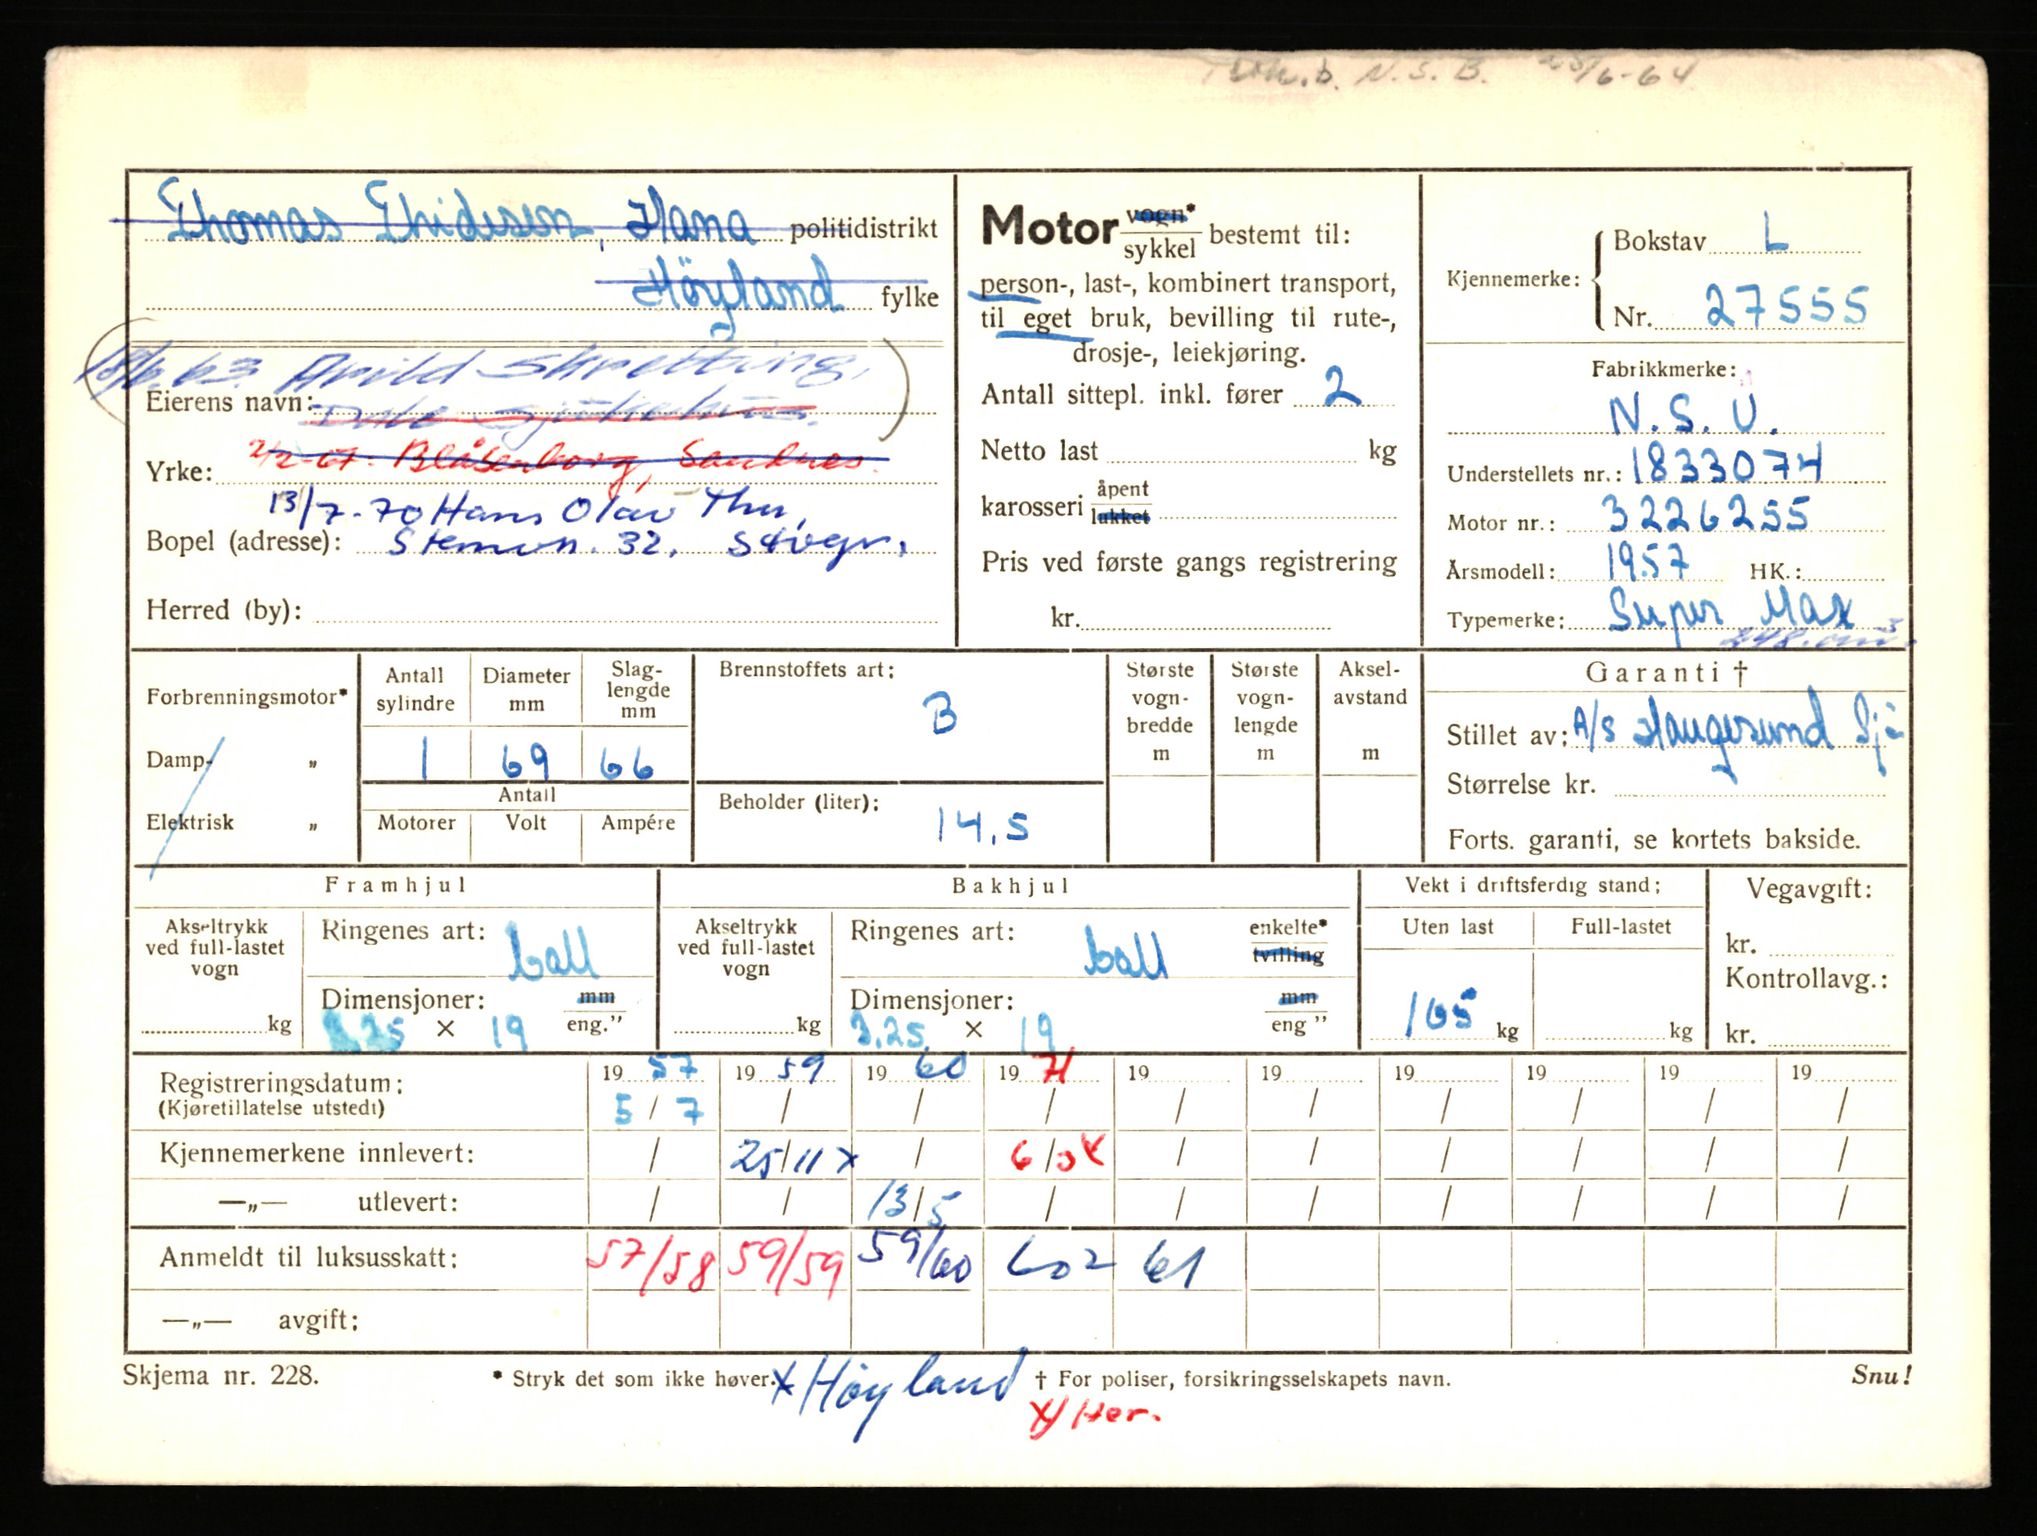 N. S. B. 25/6-64
Thomas Thidesen, Hana politidistrikt
Höyland fylke
63 Arild Skretting,
Eierens navn:
2/2-67. Blåsenborg, Sandnes.
Yrke:
13/7-70 Hans Olav Thu,
Bopel (adresse): Stemvn. 32, Stvgr,
Herred (by):
Motor vogn*
sykkel bestemt til:
person-, last-, kombinert transport,
til eget bruk, bevilling til rute-,
drosje-, leiekjøring.
Antall sittepl. inkl. fører 2
Netto last kg
karosseri åpent
lukket
Pris ved første gangs registrering
kr.
Kjennemerke: Bokstav L
Nr. 27555
Fabrikkmerke:
N. S. U.
Understellets nr.: 1833074
Motor nr.: 3226255
Årsmodell: 1957 HK.:
Typemerke: Super Max
248 cm³.
Forbrenningsmotor*
Damp- „
Elektrisk „
Antall sylindre 1
Diameter mm 69
Slag-lengde mm 66
Antall
Motorer Volt Ampére
Brennstoffets art: B
Beholder (liter): 14,5
Største vogn-bredde m
Største vogn-lengde m
Aksel-avstand m
Garanti †
Stillet av: A/S Haugesund Sjö
Størrelse kr.
Forts. garanti, se kortets bakside.
Framhjul
Akseltrykk ved full-lastet vogn
kg
Ringenes art: ball
Dimensjoner: mm
3.25 × 19 eng."
Bakhjul
Akseltrykk ved full-lastet vogn
kg
Ringenes art: ball enkelte*
tvilling
Dimensjoner: mm
3,25 × 19 eng "
Vekt i driftsferdig stand:
Uten last Full-lastet
165 kg kg
Vegavgift:
kr.
Kontrollavg.:
kr.
Registreringsdatum: 19 57 19 59 19 60 19 71 19 19 19 19 19 19
(Kjøretillatelse utstedt) 5 / 7 / / / / / / / / /
Kjennemerkene innlevert: / 25/11 x / 6/ / / / / / /
—„— utlevert: / / 13/5 / / / / / / /
Anmeldt til luksusskatt: 57/58 59/59 59/60 602 61
—„— avgift:
Skjema nr. 228.
* Stryk det som ikke høver.
x Høyland
† For poliser, forsikringsselskapets navn.
Snu!
x/ Her.